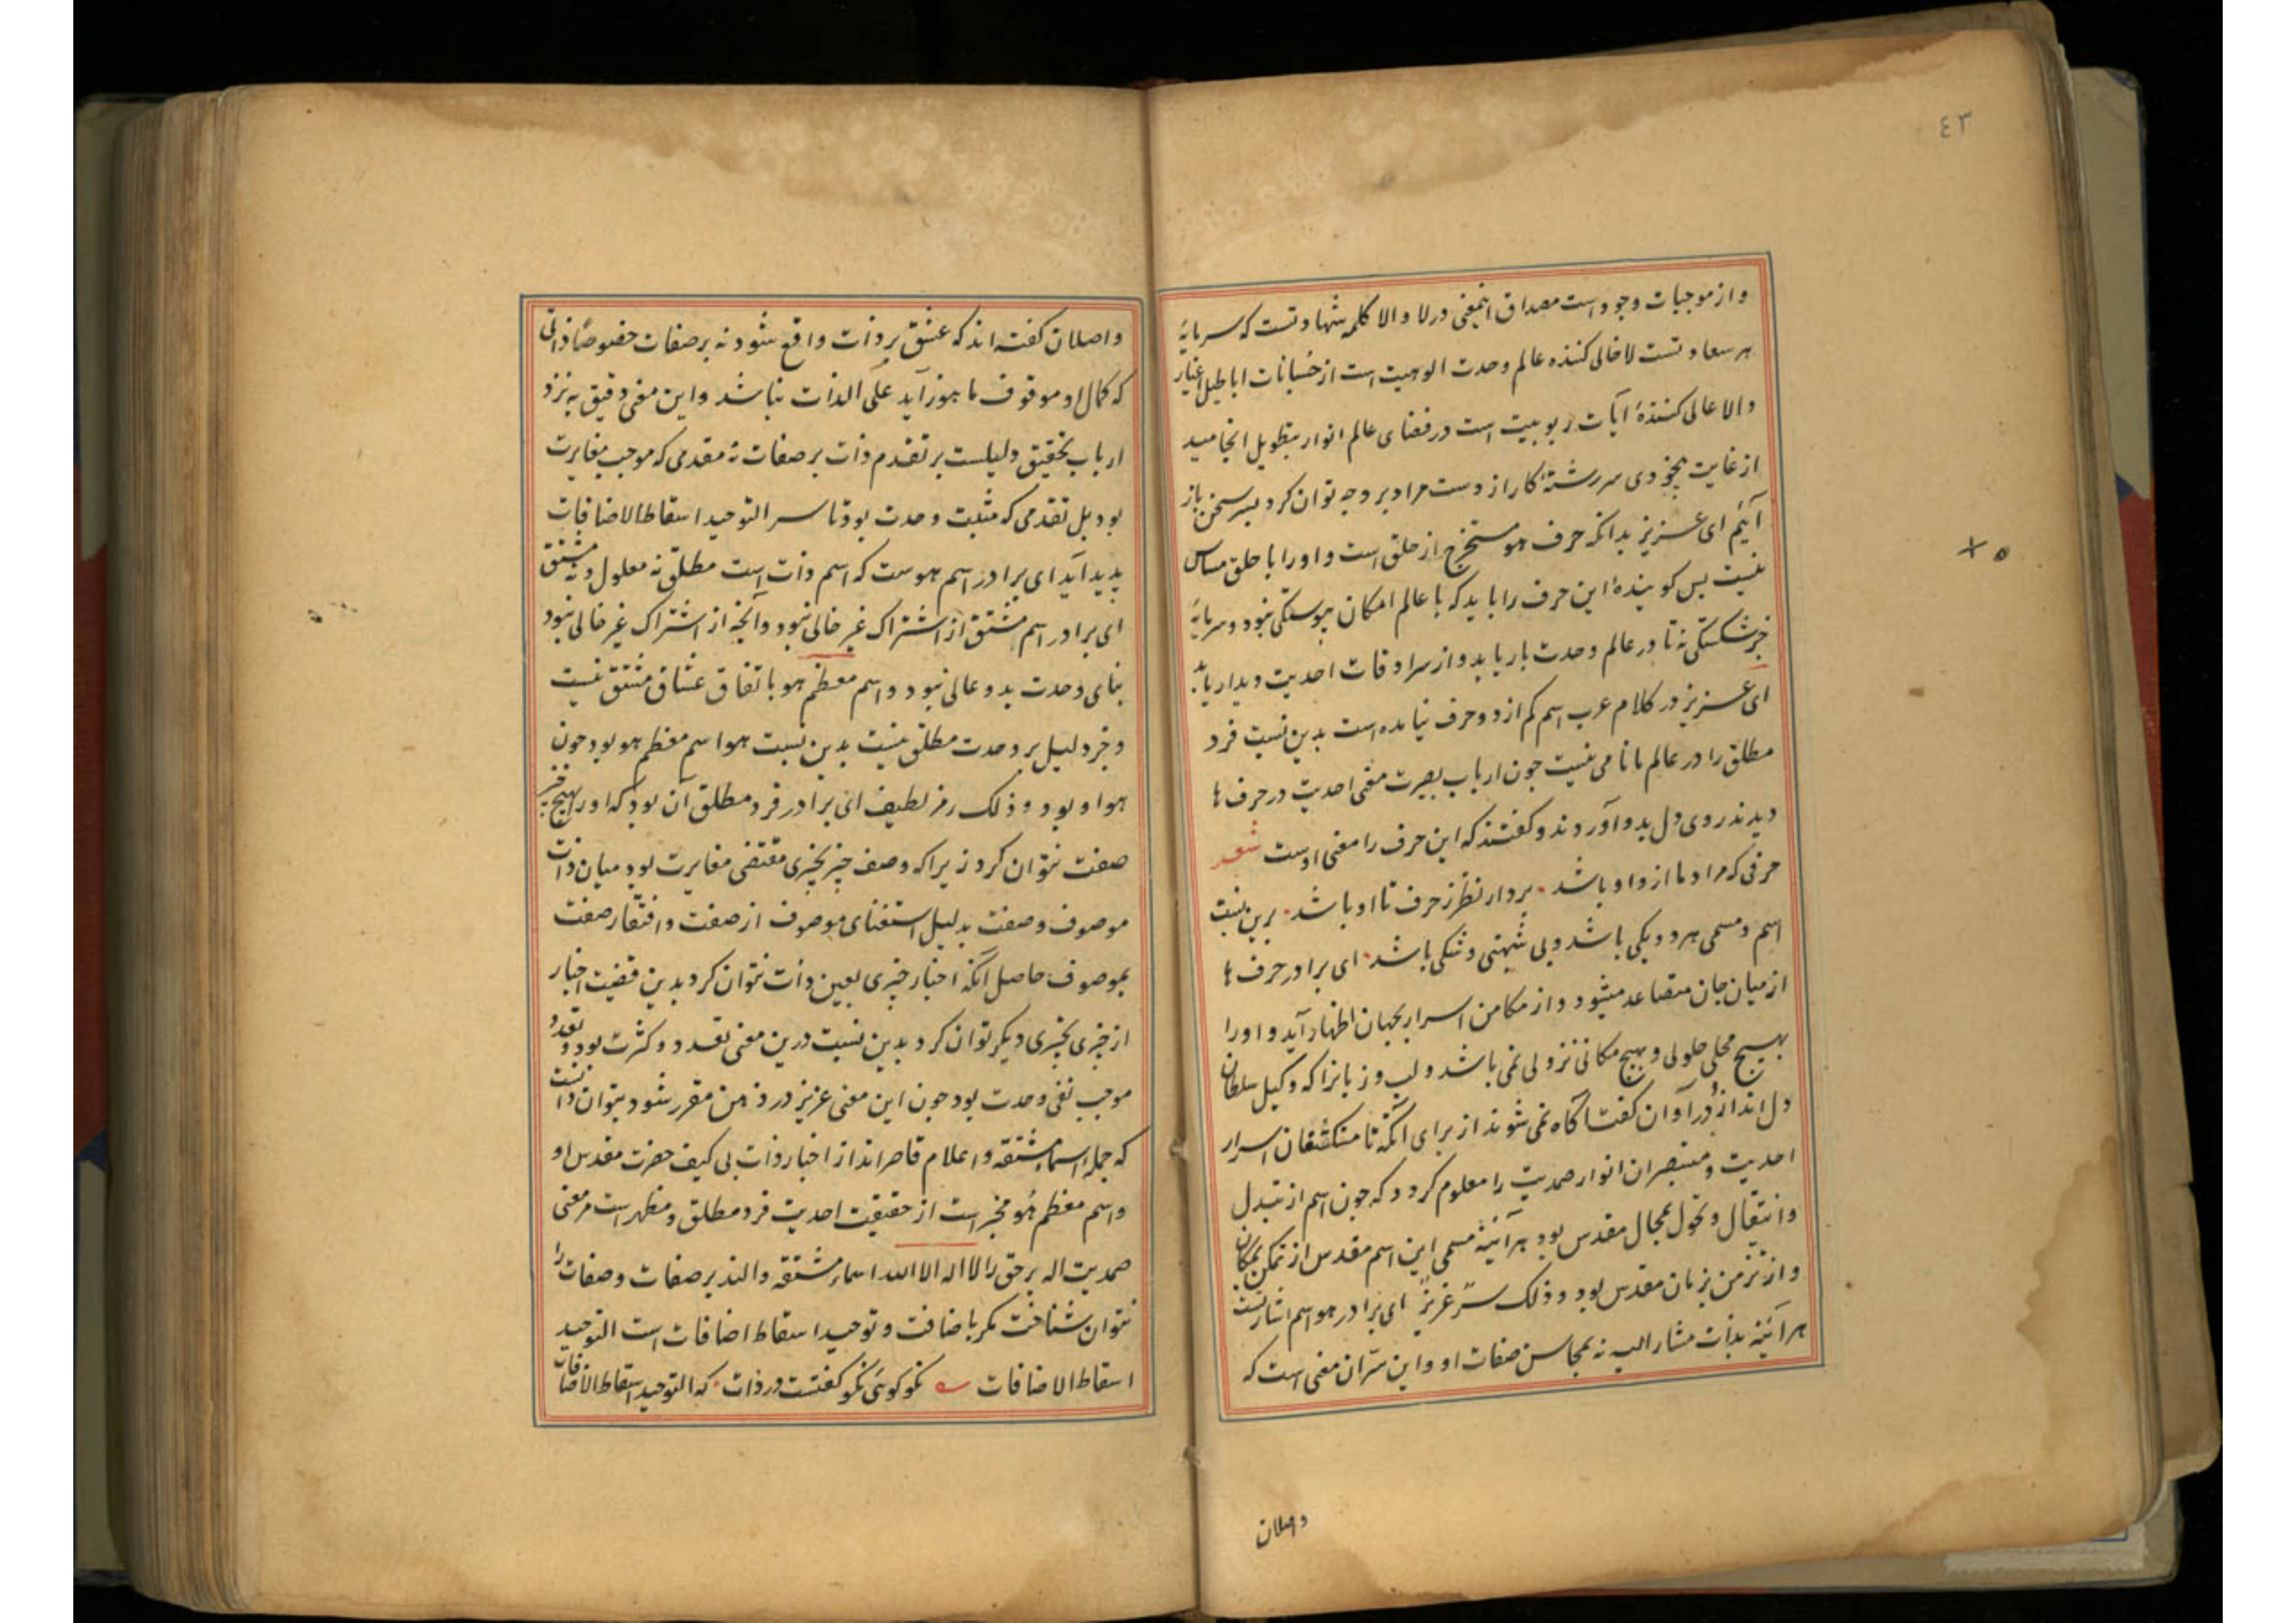 ٤٣
و از موجبات وجود است مصداق اینمعنی در لا و الا کلمه شهادتست که سرمایهٔ
هر سعادتست لا خالی کننده عالم وحدت الوهیت است از خسانات اباطیل اغیار
و الا عالی کنندهٔ آیات ربوبیت است در فضای عالم انوار بتطویل انجامید
از غایت بیخودی سررشتهٔ کار از دست مراد بر وجه توان کرد بسر سخن باز
آئیم ای عزیز بدانکه حرف هو مستخرج از حلق است و او را با حلق مساس
نیست پس کوینده این حرف را باید که با عالم امکان پیوستکی نبود و سرمایهٔ
جز شکستکی نه تا در عالم وحدت بار یابد و از سرادقات احدیت دیدار یابد
ای عزیز در کلام عرب اسم کم از دو حرف نیامده است بدین نسبت فرد
مطلق را در عالم ما نامی نیست چون ارباب بصیرت معنی احدیت در حرف ها
دیدند روی دل بدو آوردند و کفتند که این حرف را معنی اوست شعر
حرفی که مراد ما ازو او باشد • بردار نظر ز حرف تا او باشد • برین نسبت
اسم و مسمی هر دو یکی باشد و بی شبهتی و شکی باشد • ای برادر حرف ها
از میان جان متصاعد میشود و از مکامن اسرار بجهان اظهار آید و او را
بهیچ محلی حلولی و بهیچ مکانی نزولی نمی باشد و لب و زبانرا که وکیل سلطان
دل اند از در آوان کفت آکاه نمی شوند از برای آنکه تا مستکشفان اسرار
احدیت و مستبصران انوار صمدیت را معلوم کردد که چون اسم از تبدل
و انتقال و تحول بمجال مقدس بود هر آئینه مسمی این اسم مقدس از تمکن بمکان
و از تزمن بزمان مقدس بود و ذلک سر عزیز ای برادر هو اسم اشارتست
هر آئینه بذات مشار الیه نه بمحاسن صفات او و این سر آن معنی است که
واصلان
واصلان کفته اند که عشق بر ذات واقع شود نه بر صفات خصوصا ذاتی
که کمال او موقوف ما هو زآید علی الذات نباشد و این معنی دقیق به نزد
ارباب تحقیق دلیلست بر تقدم ذات بر صفات نه مقدمی که موجب مغایرت
بود بل تقدمی که مثبت وحدت بود تا سر التوحید اسقاط الاضافات
پدید آید ای برادر اسم هوست که اسم ذات است مطلق نه معلول و نه مشتق
ای برادر اسم مشتق از اشتراک غیر خالی نبود و آنچه از اشتراک غیر خالی نبود
بنای وحدت بدو عالی نبود و اسم معظم هو باتفاق عشاق مشتق نیست
و جز دلیل بر وحدت مطلق نیست بدین نسبت هو اسم معظم هو بود چون
هو او بود و ذلک رمز لطیف ای برادر فرد مطلق آن بود که او را بهیچ چیز
صفت نتوان کرد زیرا که وصف چیز بچیزی مقتضی مغایرت بود میان ذات
موصوف و صفت بدلیل استغنای موصوف از صفت و افتقار صفت
بموصوف حاصل آنکه اخبار چیزی بعین ذات نتوان کرد بدین قضیت اخبار
از چیزی بچیزی دیکر توان کرد بدین نسبت درین معنی تعدد و کثرت بود و تعدد
موجب نفی وحدت بود چون این معنی عزیز در ذهن مقرر شود بتوان دانست
که جمله اسماء مشتقه و اعلام قاصر اند از اخبار ذات بی کیف حضرت مقدس او
و اسم معظم هو مخبر است از حقیقت احدیت فرد مطلق و مظهر است مر معنی
صمدیت اله برحق را لا اله الا الله اسماء مشتقه دالند بر صفات و صفات را
نتوان شناخت مکر باضافت و توحید اسقاط اضافات است التوحید
اسقاط الاضافات نکو کوئی نکو کفتست در ذات • که التوحید اسقاط الاضافات